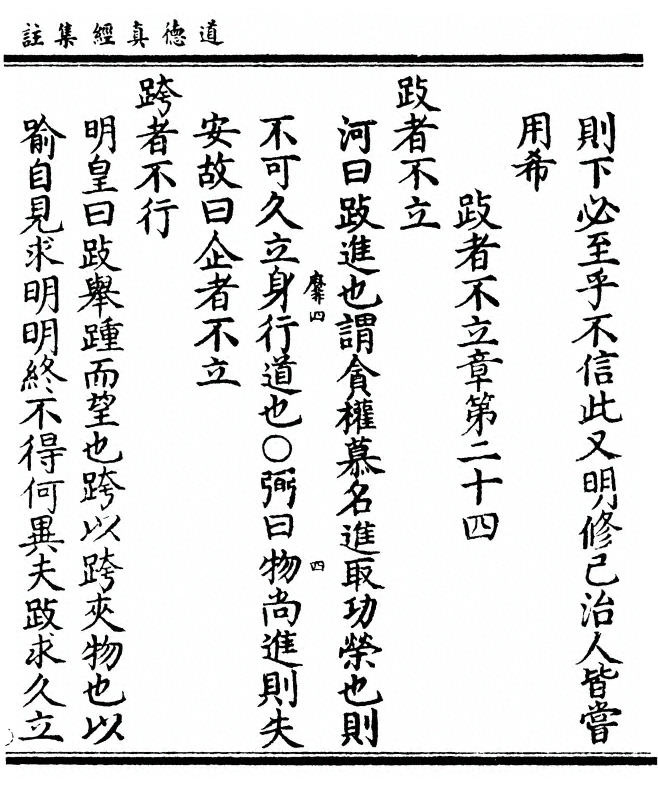 道德真經集註
則下必至乎不信此又明修己治人皆嘗
用希
跂者不立章第二十四
跂者不立
河曰跂進也謂貪權慕名進取功榮也則
靡 四
四
不可久立身行道也〇弼曰物尚進則失
安故曰企者不立
跨者不行
明皇曰跂舉踵而望也跨以跨夾物也以
喻自見求明明終不得何異夫跂求久立